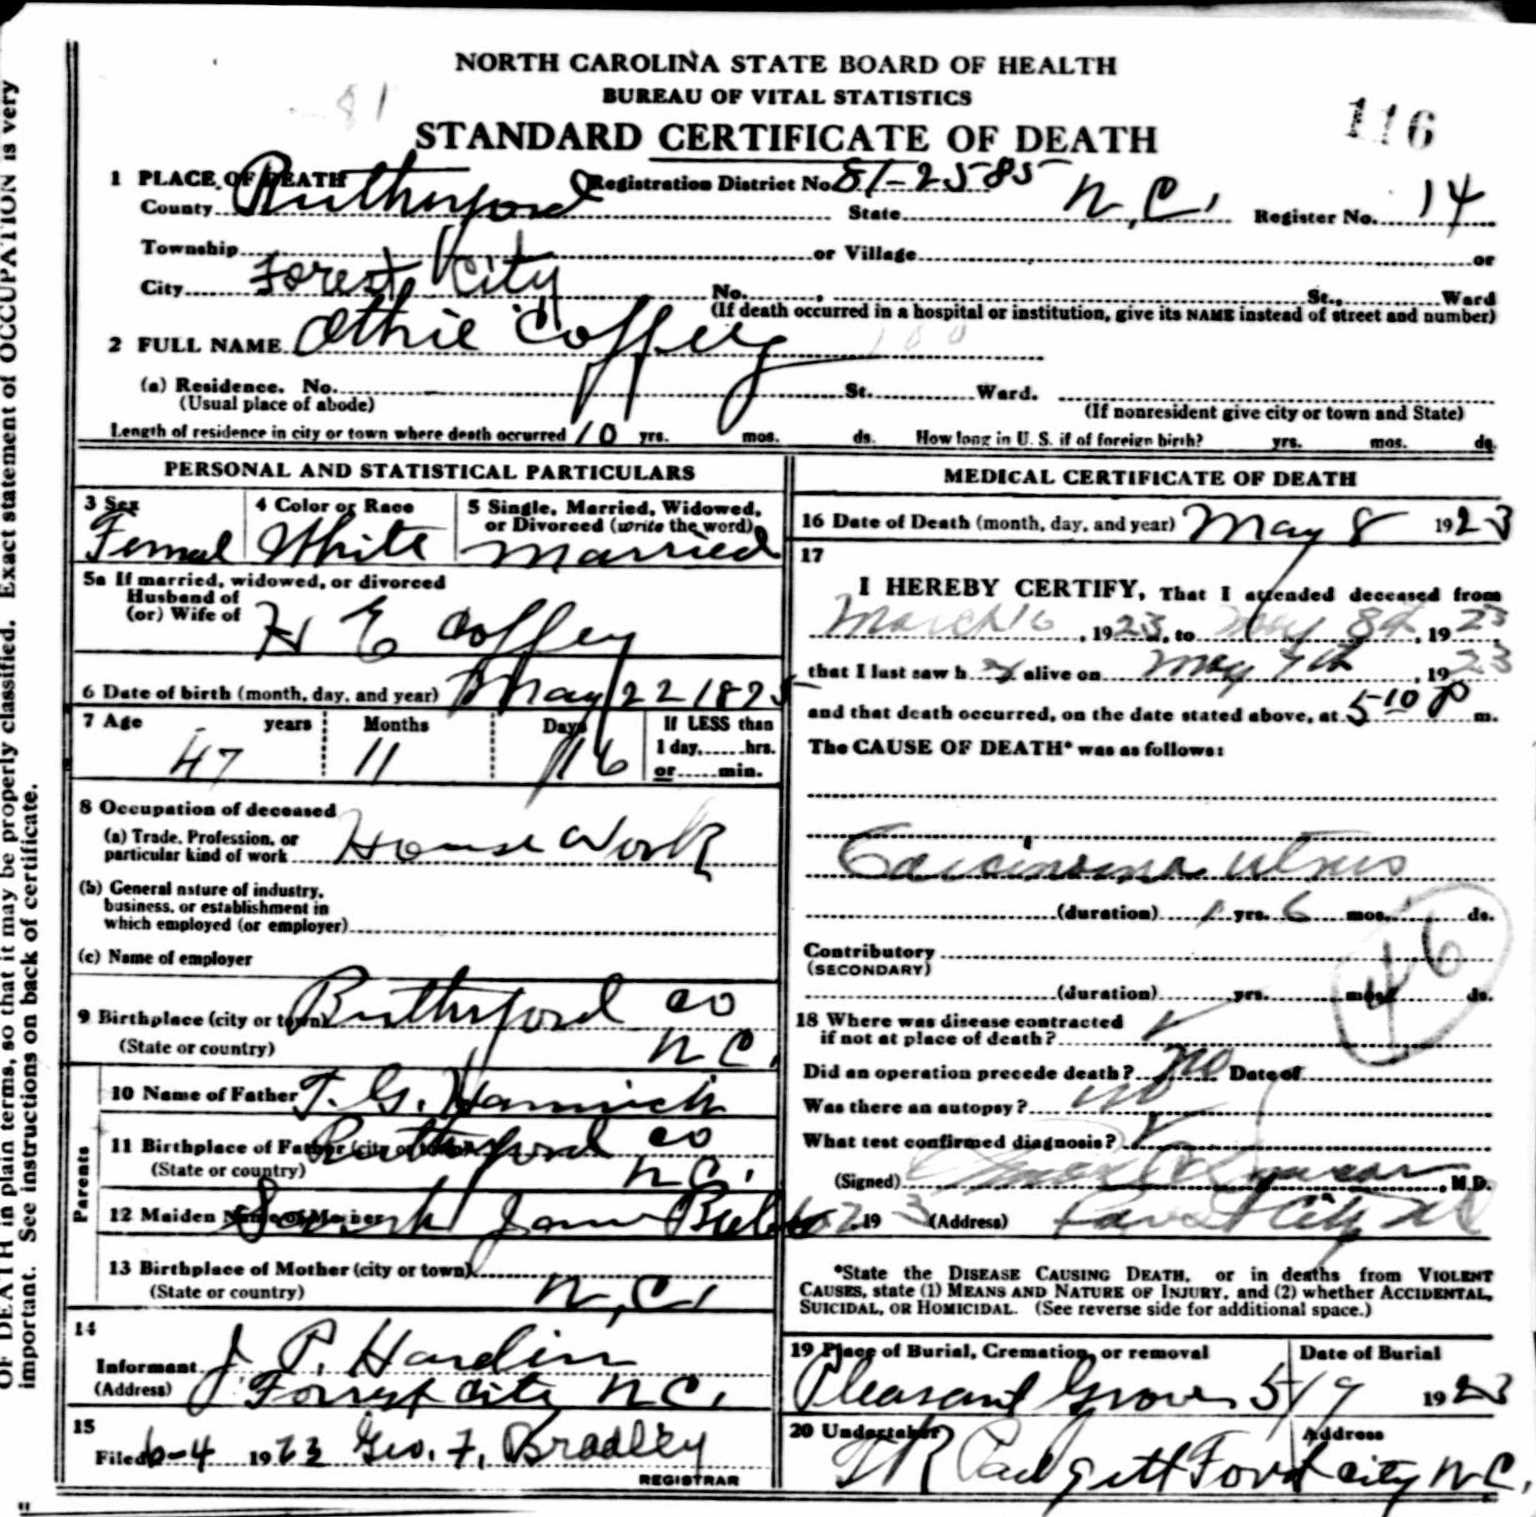 OF DEATH in plain terms, so that it may be properly classified. Exact statement of OCCUPATION is very
important. See instructions on back of certificate.
NORTH CAROLINA STATE BOARD OF HEALTH
BUREAU OF VITAL STATISTICS
81
STANDARD CERTIFICATE OF DEATH
116
1 PLACE OF DEATH Registration District No. 81-2585
County Rutherford State N.C. Register No. 14
Township or Village or
City Forest City No. , St., Ward
(If death occurred in a hospital or institution, give its NAME instead of street and number)
2 FULL NAME Othie Coffey
(a) Residence. No. St. Ward.
(Usual place of abode) (If nonresident give city or town and State)
Length of residence in city or town where death occurred 10 yrs. mos. ds. How long in U. S. if of foreign birth? yrs. mos. ds.
PERSONAL AND STATISTICAL PARTICULARS
3 Sex 4 Color or Race 5 Single, Married, Widowed,
or Divorced (write the word)
Femal White Married
5a If married, widowed, or divorced
Husband of
(or) Wife of H E Coffey
6 Date of birth (month, day, and year) May 22 1875
7 Age years Months Days If LESS than
1 day, hrs.
47 11 16 or min.
8 Occupation of deceased
(a) Trade, Profession, or
particular kind of work House Work
(b) General nature of industry,
business, or establishment in
which employed (or employer)
(c) Name of employer
9 Birthplace (city or town) Rutherford co
(State or country) N C.
Parents
10 Name of Father T. G. Hamrick
11 Birthplace of Father (city or town) Rutherford co
(State or country) N.C.
12 Maiden Name of Mother Sarah Jane
13 Birthplace of Mother (city or town)
(State or country) N.C.
14
Informant J P. Hardin
(Address) Forrest city N.C.
15
Filed 6-4 1923 Geo. F. Bradley
REGISTRAR
MEDICAL CERTIFICATE OF DEATH
16 Date of Death (month, day, and year) May 8 1923
17
I HEREBY CERTIFY, That I attended deceased from
March 16, 1923, to May 8th, 1923
that I last saw h er alive on May 7th, 1923
and that death occurred, on the date stated above, at 5 10 P m.
The CAUSE OF DEATH* was as follows:
Carcinoma uterus
(duration) 1 yrs. 6 mos. ds.
Contributory
(SECONDARY)
(duration) yrs. mos. ds.
46
18 Where was disease contracted
if not at place of death?
Did an operation precede death? no Date of
Was there an autopsy? no
What test confirmed diagnosis?
(Signed) , M.D.
19 3 (Address) Forest City N C
*State the DISEASE CAUSING DEATH, or in deaths from VIOLENT
CAUSES, state (1) MEANS AND NATURE OF INJURY, and (2) whether ACCIDENTAL,
SUICIDAL, OR HOMICIDAL. (See reverse side for additional space.)
19 Place of Burial, Cremation, or removal Date of Burial
Pleasant Grove 5/9 1923
20 Undertaker Address
Padgett Forest city N.C.